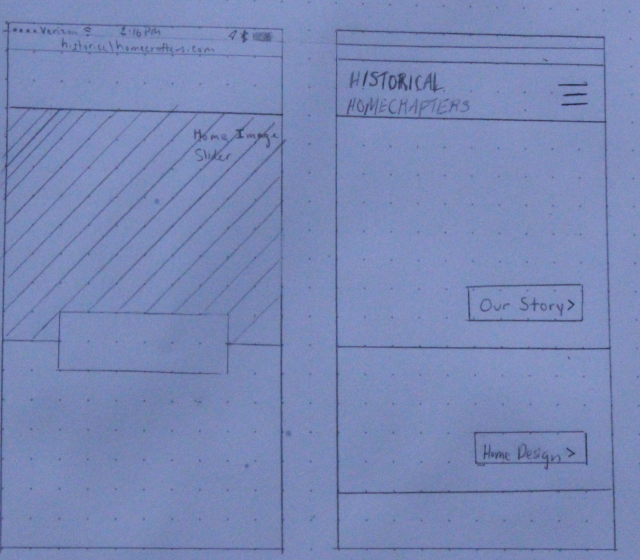 Verizon 2:16 PM
historicalhomecrafters.com
Home Image
Slider
HISTORICAL
HOMECHAPTERS
Our Story >
Home Design >